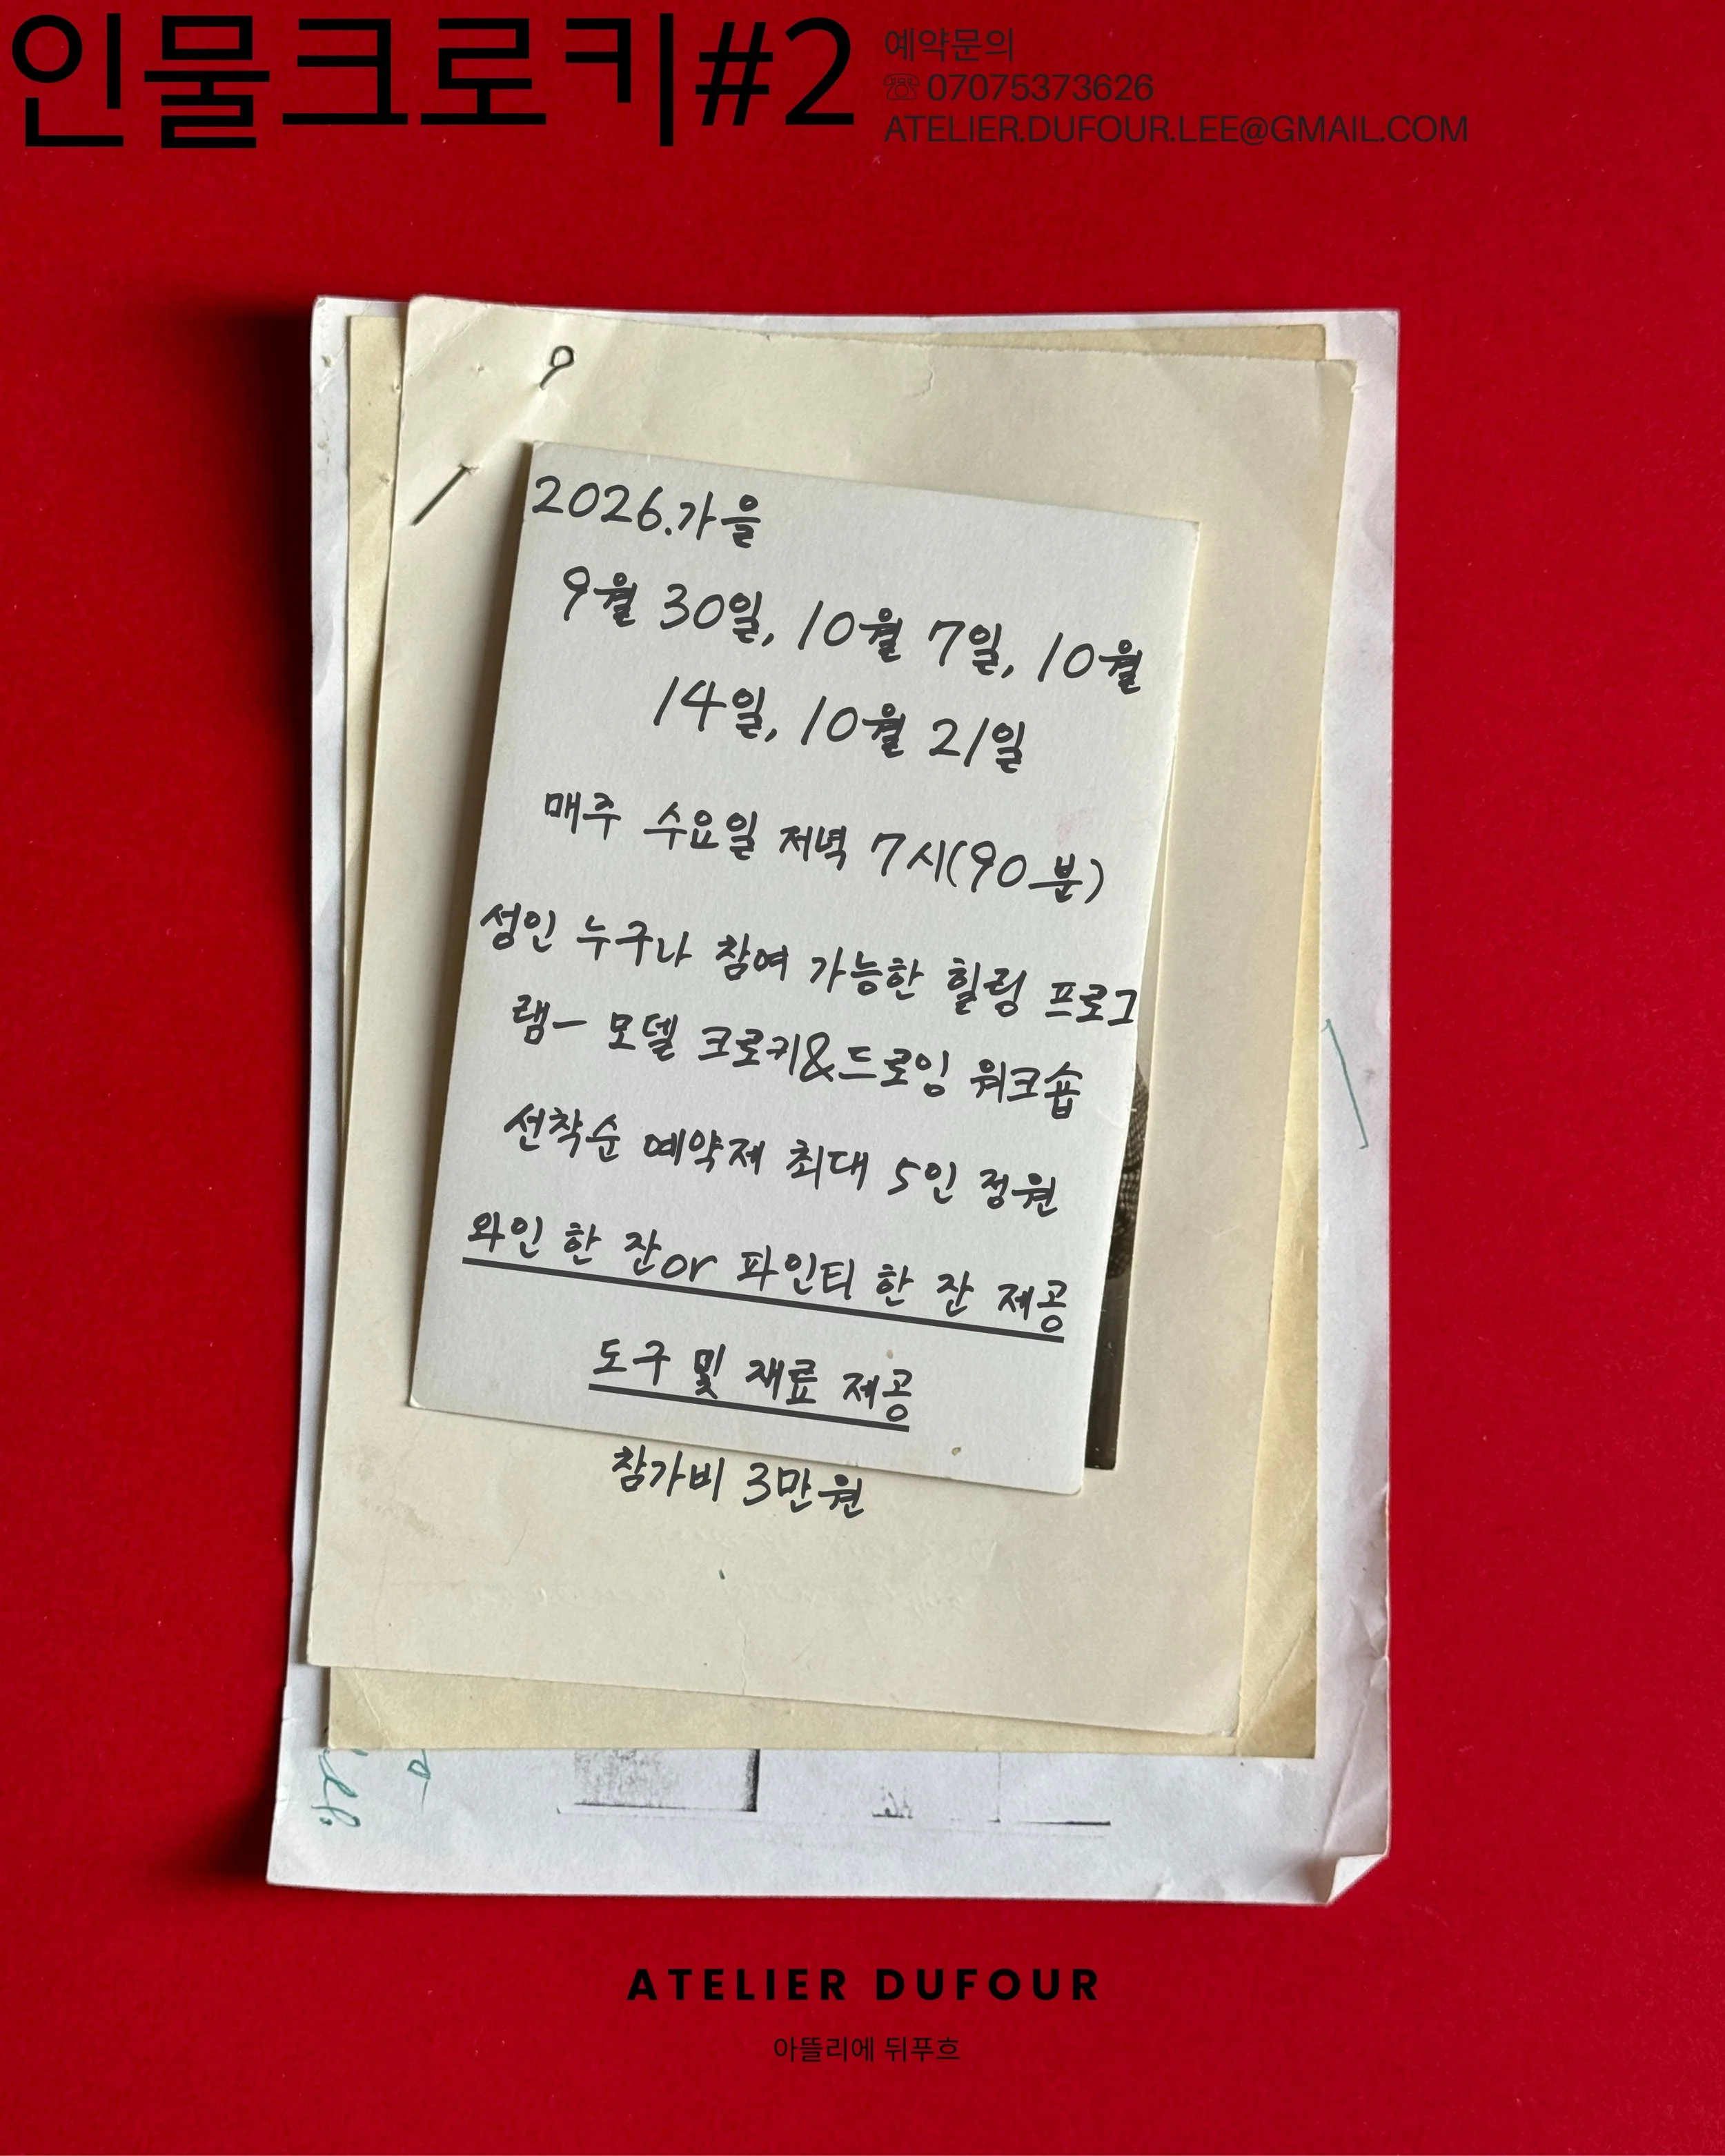 인물크로키#2
예약문의
☏ 07075373626
ATELIER.DUFOUR.LEE@GMAIL.COM
2026.가을
9월 30일, 10월 7일, 10월
14일, 10월 21일
매주 수요일 저녁 7시(90분)
성인 누구나 참여 가능한 힐링 프로그
램- 모델 크로키&드로잉 워크숍
선착순 예약제 최대 5인 정원
와인 한 잔or 파인티 한 잔 제공
도구 및 재료 제공
참가비 3만원
ATELIER DUFOUR
아뜰리에 뒤푸흐